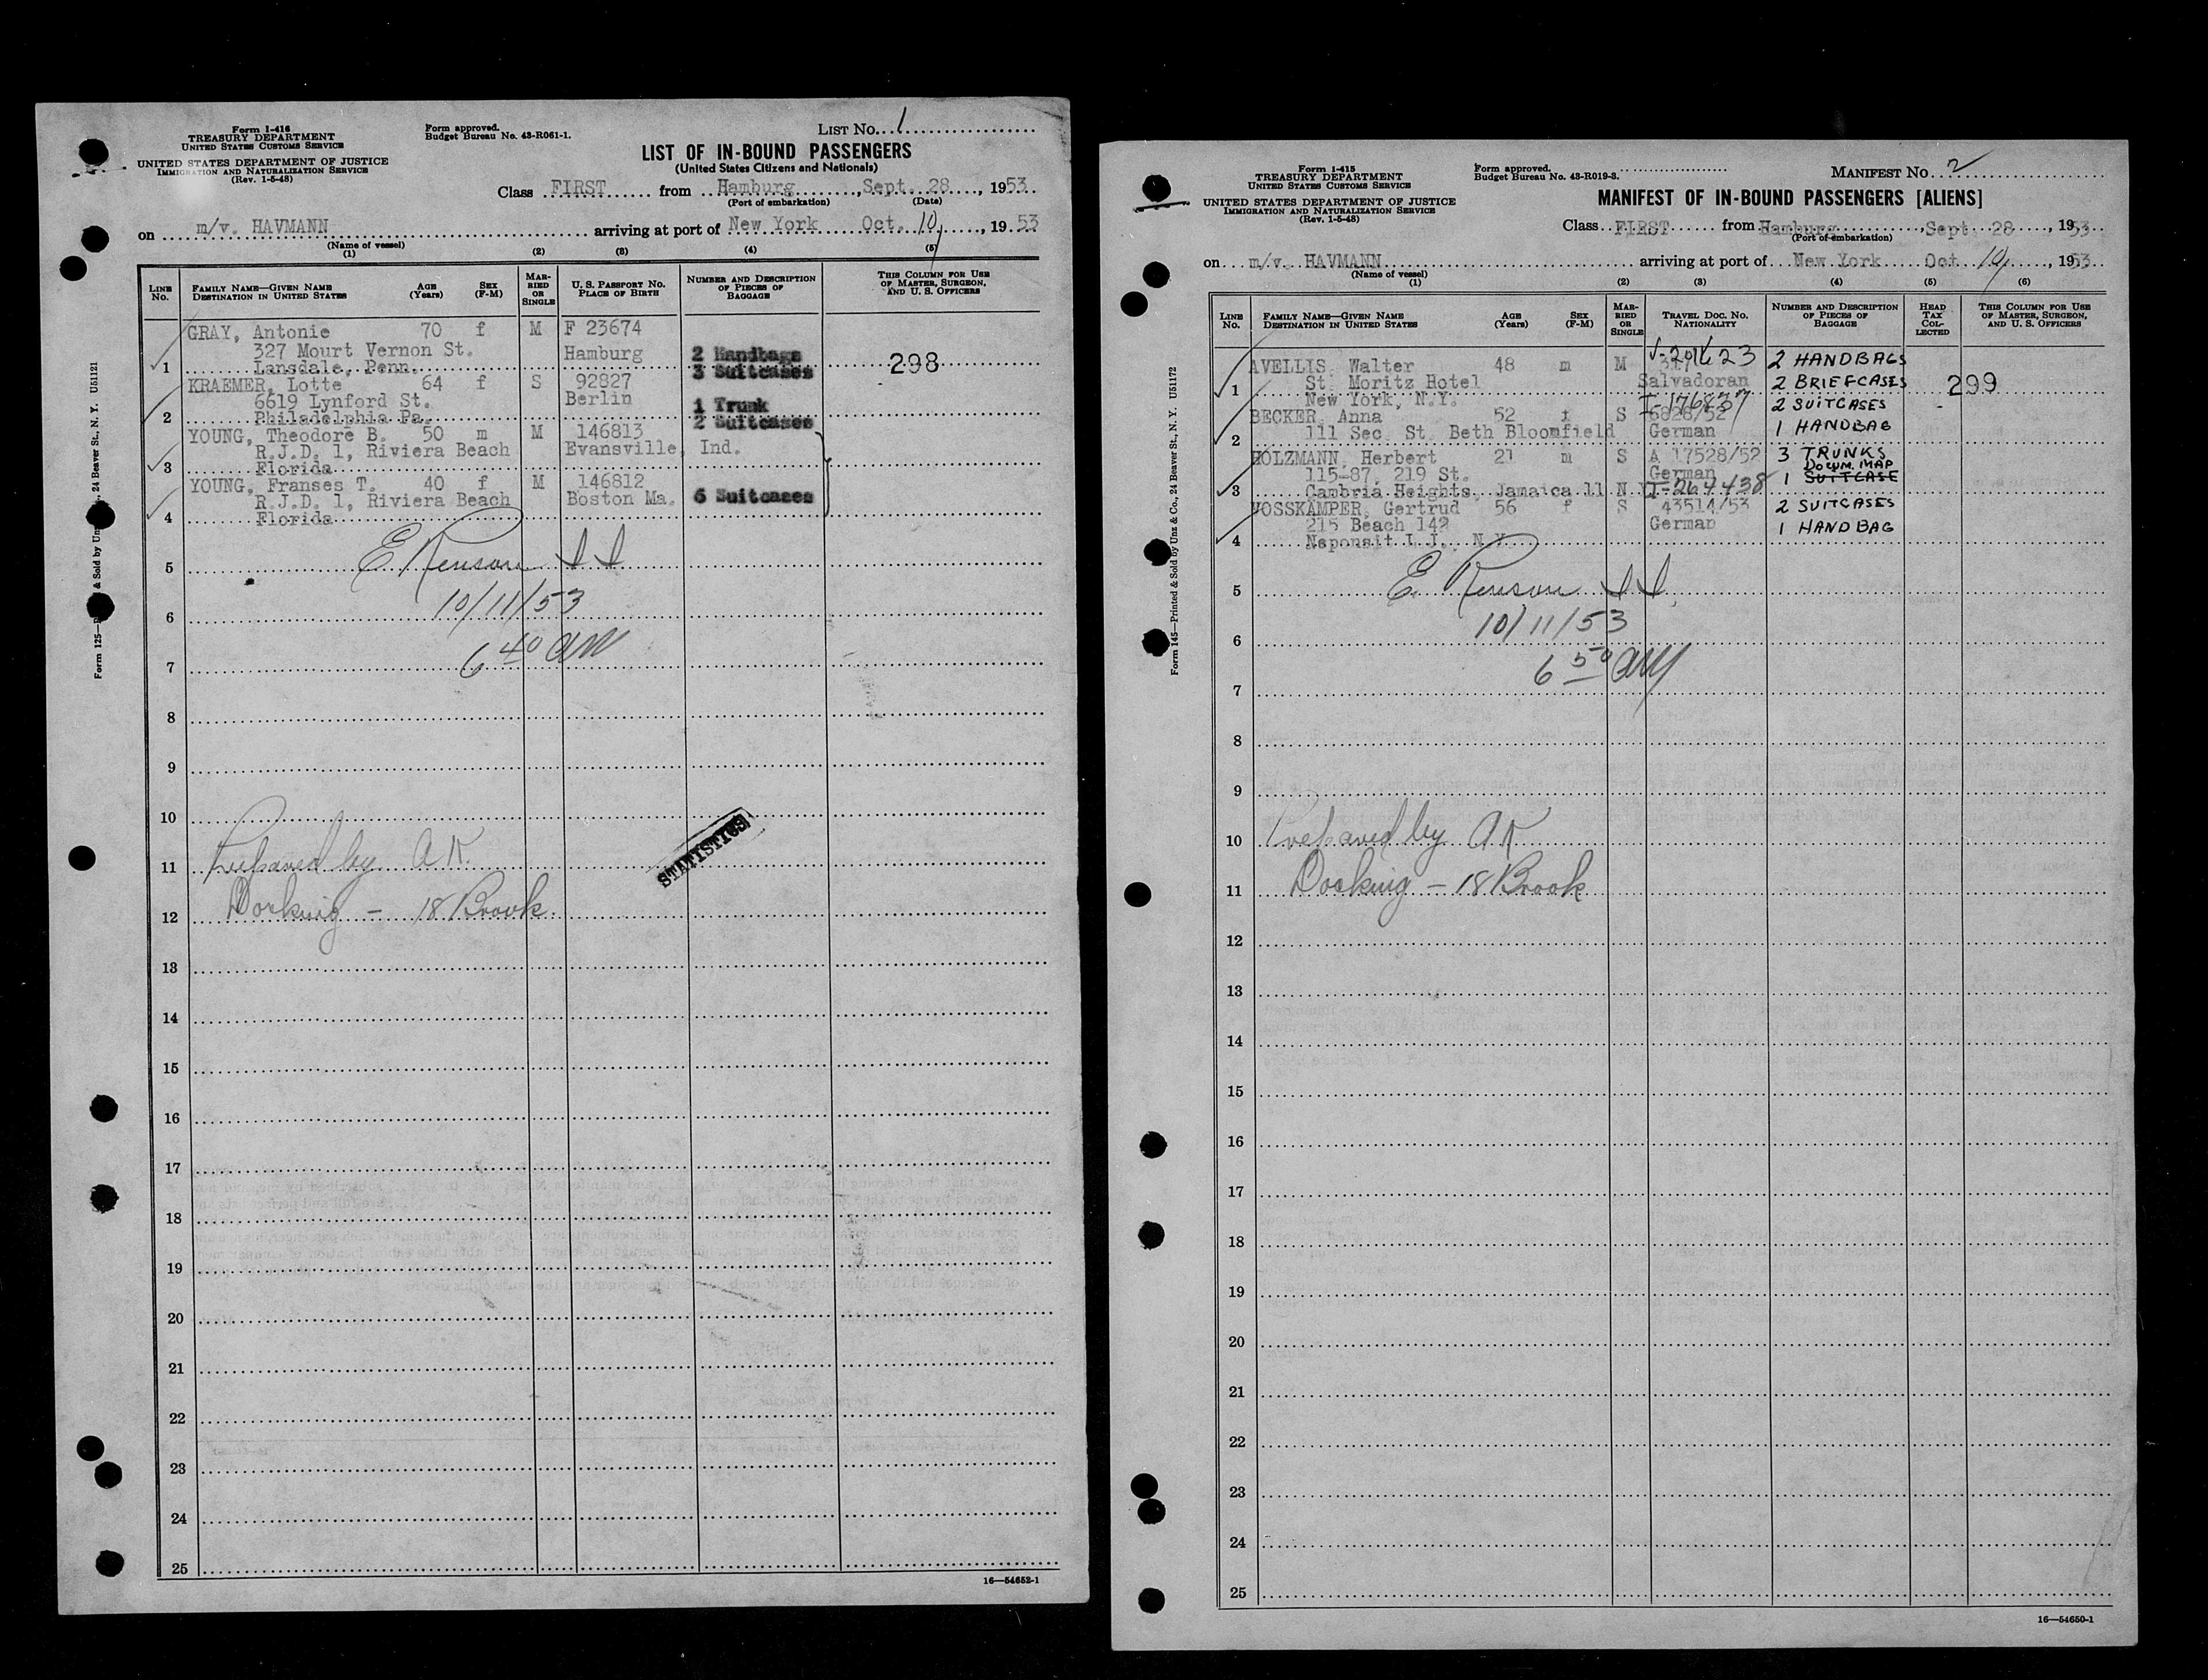 Form I-416
TREASURY DEPARTMENT
UNITED STATES CUSTOMS SERVICE
UNITED STATES DEPARTMENT OF JUSTICE
IMMIGRATION AND NATURALIZATION SERVICE
(Rev. 1-5-48)
Form approved.
Budget Bureau No. 43-R061-1.
LIST NO. 1
LIST OF IN-BOUND PASSENGERS
(United States Citizens and Nationals)
Class FIRST from Hamburg, Sept. 28, 1953
(Port of embarkation) (Date)
on m/v. HAVMANN arriving at port of New York Oct. 10, 1953
(Name of vessel)
(1) (2) (3) (4) (5)
LINE No. FAMILY NAME—GIVEN NAME DESTINATION IN UNITED STATES AGE (Years) SEX (F-M) MARRIED OR SINGLE U. S. PASSPORT NO. PLACE OF BIRTH NUMBER AND DESCRIPTION OF PIECES OF BAGGAGE THIS COLUMN FOR USE OF MASTER, SURGEON, AND U. S. OFFICERS
GRAY, Antonie 70 f M F 23674
327 Mourt Vernon St. Hamburg 2 Handbags
1 Lansdale, Penn. 3 Suitcases 298
KRAEMER, Lotte 64 f S 92827
6619 Lynford St. Berlin 1 Trunk
2 Philadelphia Pa. 2 Suitcases
YOUNG, Theodore B. 50 m M 146813
R.J.D. 1, Riviera Beach Evansville, Ind.
3 Florida
YOUNG, Franses T. 40 f M 146812
R.J.D. 1, Riviera Beach Boston Ma. 6 Suitcases
4 Florida
5 E.
6 10/11/53
7 6 40 AM
8
9
10
11 Prepared by A K.
12 Docking - 18 Brook.
STATISTICS
13
14
15
16
17
18
19
20
21
22
23
24
25
16—54652-1
24 Beaver St., N. Y. U51121
Form 1-415
TREASURY DEPARTMENT
UNITED STATES CUSTOMS SERVICE
UNITED STATES DEPARTMENT OF JUSTICE
IMMIGRATION AND NATURALIZATION SERVICE
(Rev. 1-5-48)
Form approved.
Budget Bureau No. 43-R019-3.
MANIFEST NO. 2
MANIFEST OF IN-BOUND PASSENGERS [ALIENS]
Class FIRST from Hamburg, Sept. 28, 1953
(Port of embarkation)
on m/v. HAVMANN arriving at port of New York Oct. 10, 1953
(Name of vessel)
(1) (2) (3) (4) (5) (6)
LINE No. FAMILY NAME—GIVEN NAME DESTINATION IN UNITED STATES AGE (Years) SEX (F-M) MARRIED OR SINGLE TRAVEL DOC. NO. NATIONALITY NUMBER AND DESCRIPTION OF PIECES OF BAGGAGE HEAD TAX COLLECTED THIS COLUMN FOR USE OF MASTER, SURGEON, AND U. S. OFFICERS
AVELLIS, Walter 48 m M 2 HANDBAGS
St. Moritz Hotel Salvadoran 2 BRIEFCASES
1 New York, N.Y. I-176837 2 SUITCASES 299
BECKER, Anna 52 f S 6828/52 1 HANDBAG
2 111 Sec. St. Beth Bloomfield German
HOLZMANN, Herbert 21 m S A 17528/52 3 TRUNKS
115-87, 219 St. German DOCUM. MAP
3 Cambria Heights, Jamaica 11 N.Y. I-264438 1 SUITCASE
VOSSKÄMPER, Gertrud 56 f S 43514/53 2 SUITCASES
215 Beach 142 German 1 HANDBAG
4 Neponsit L.I., N.Y.
5 E.
6 10/11/53
7 6 50 AM
8
9
10 Prepared by A K
11 Docking - 18 Brook
12
13
14
15
16
17
18
19
20
21
22
23
24
25
16—54650-1
Form 145—Printed & Sold by Unz & Co., 24 Beaver St., N. Y. U51172